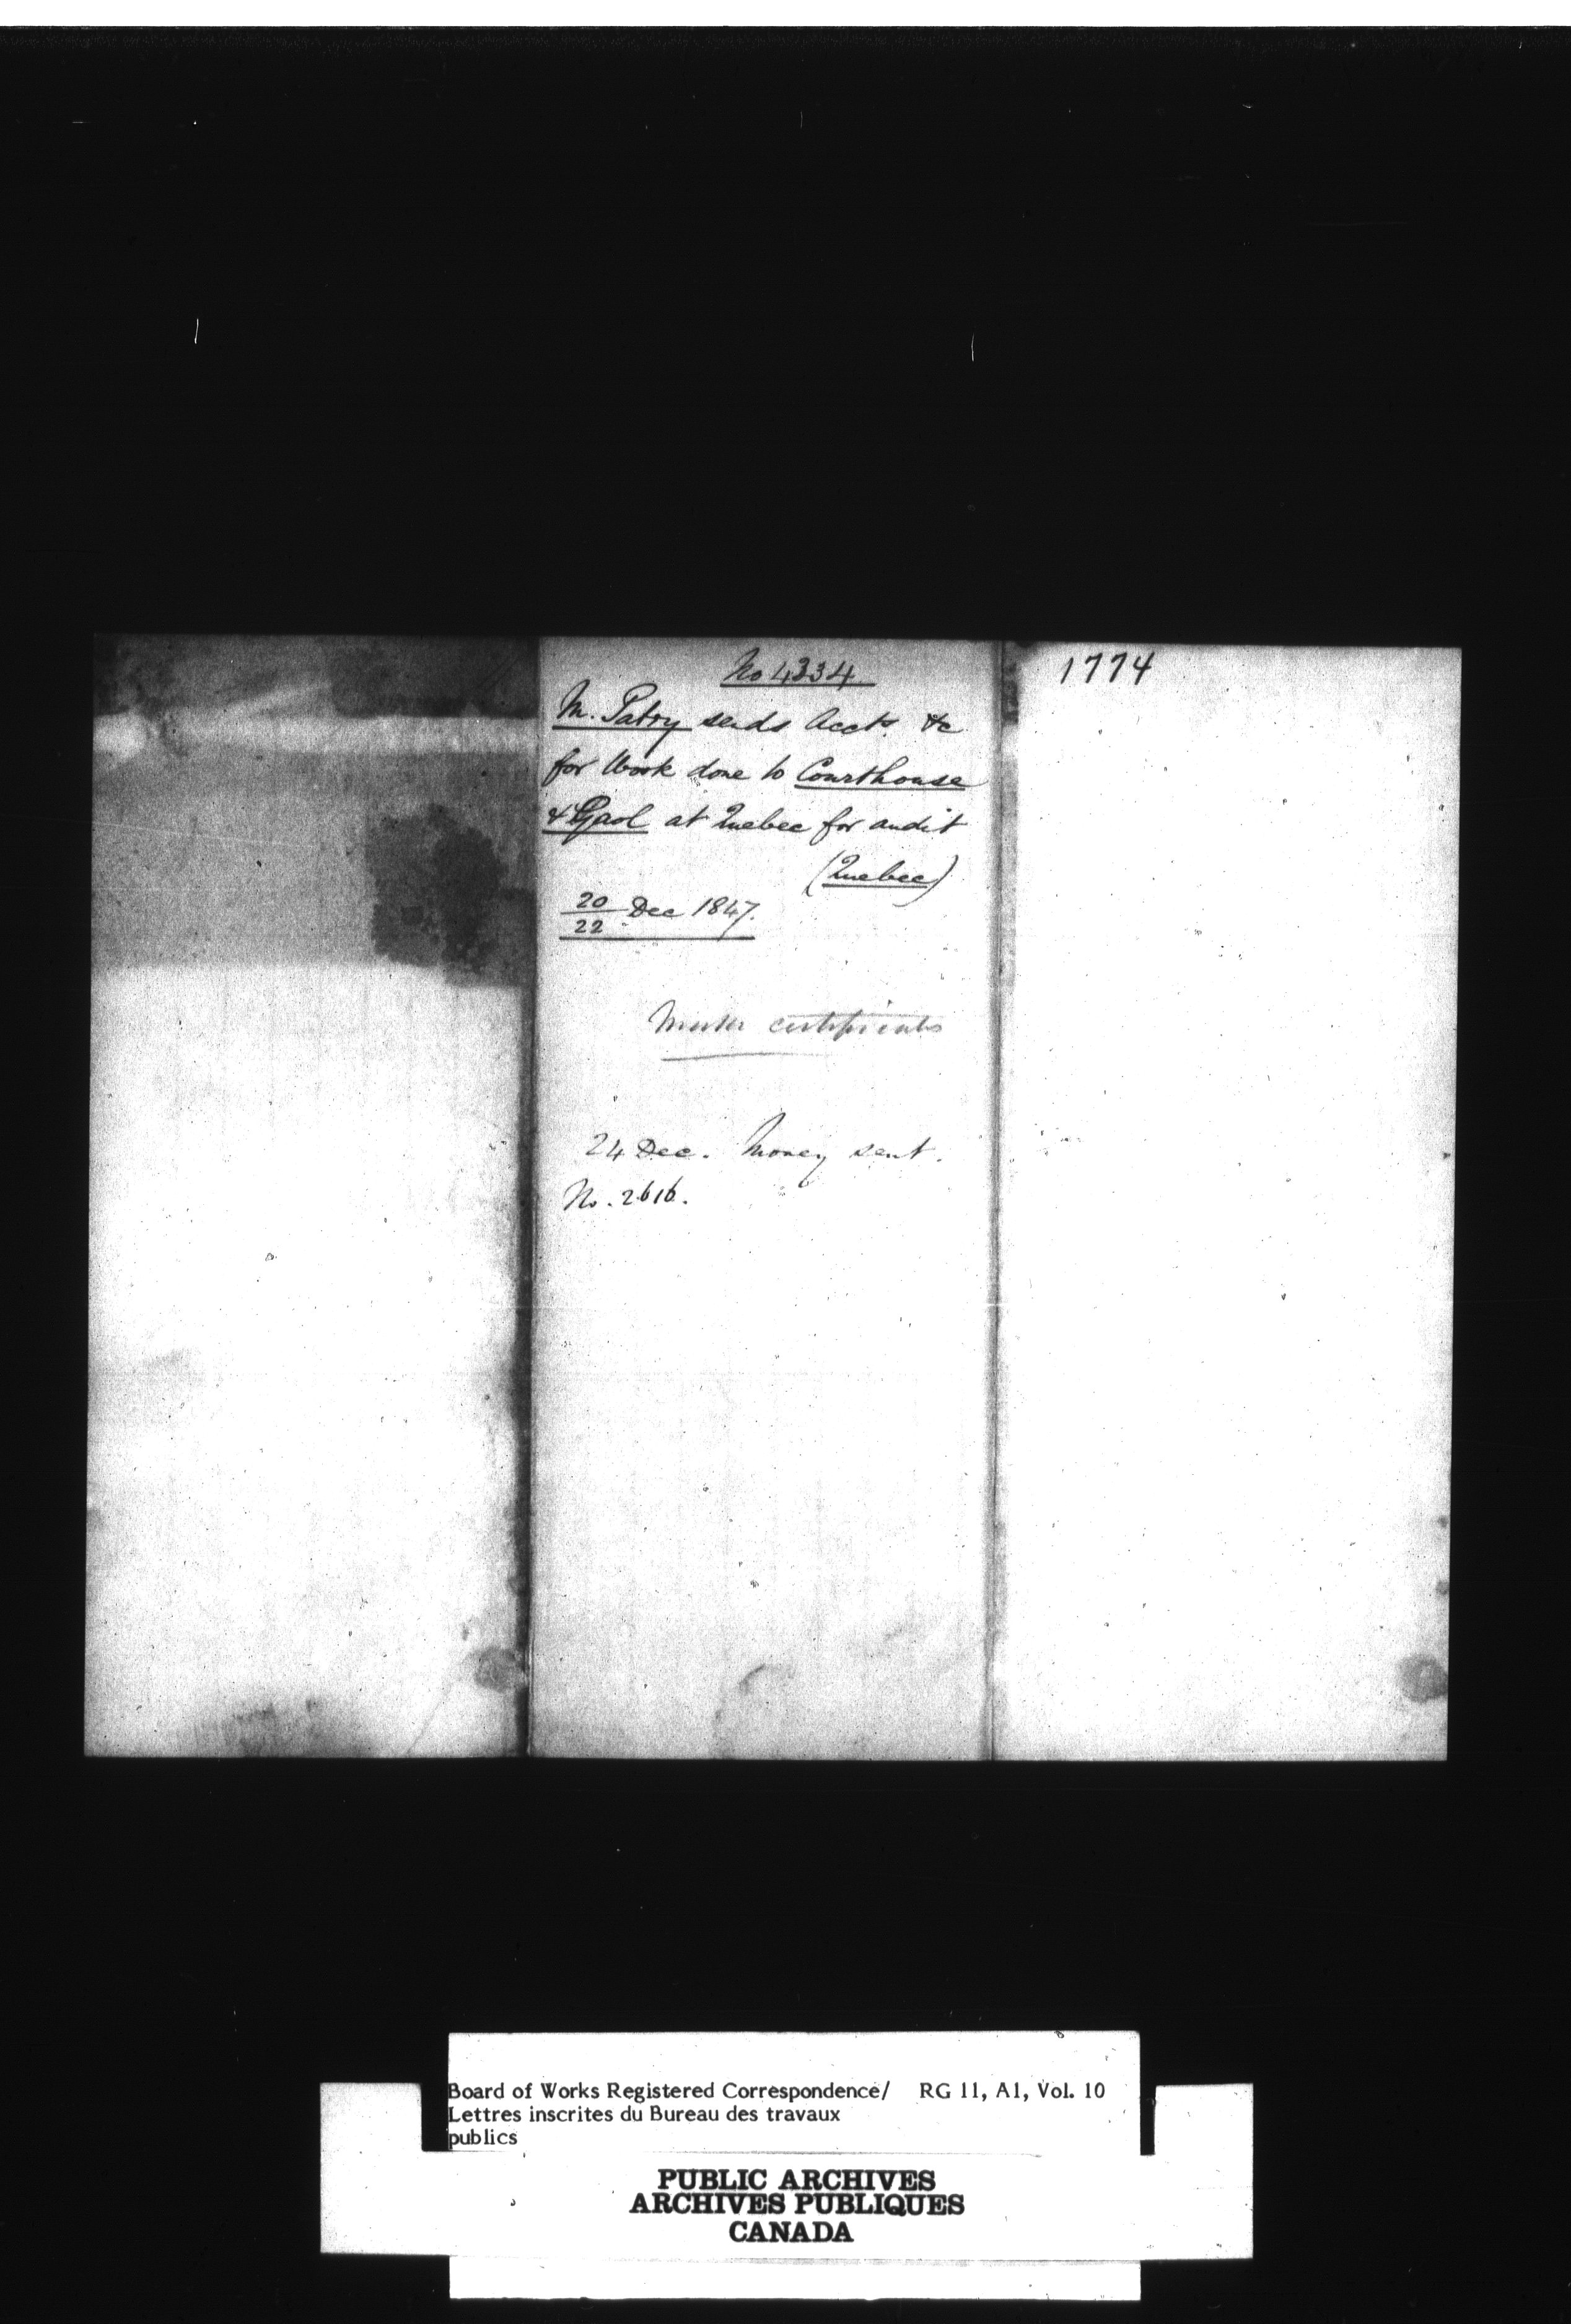 No 4334
M. Patry sends Accts. &c
for Work done to Courthouse
& Gaol at Quebec for audit
(Quebec)
20
22 Dec 1847.
certificates
24 Dec. Money sent.
No. 2616.
1774
Board of Works Registered Correspondence/ RG 11, A1, Vol. 10
Lettres inscrites du Bureau des travaux
publics
PUBLIC ARCHIVES
ARCHIVES PUBLIQUES
CANADA